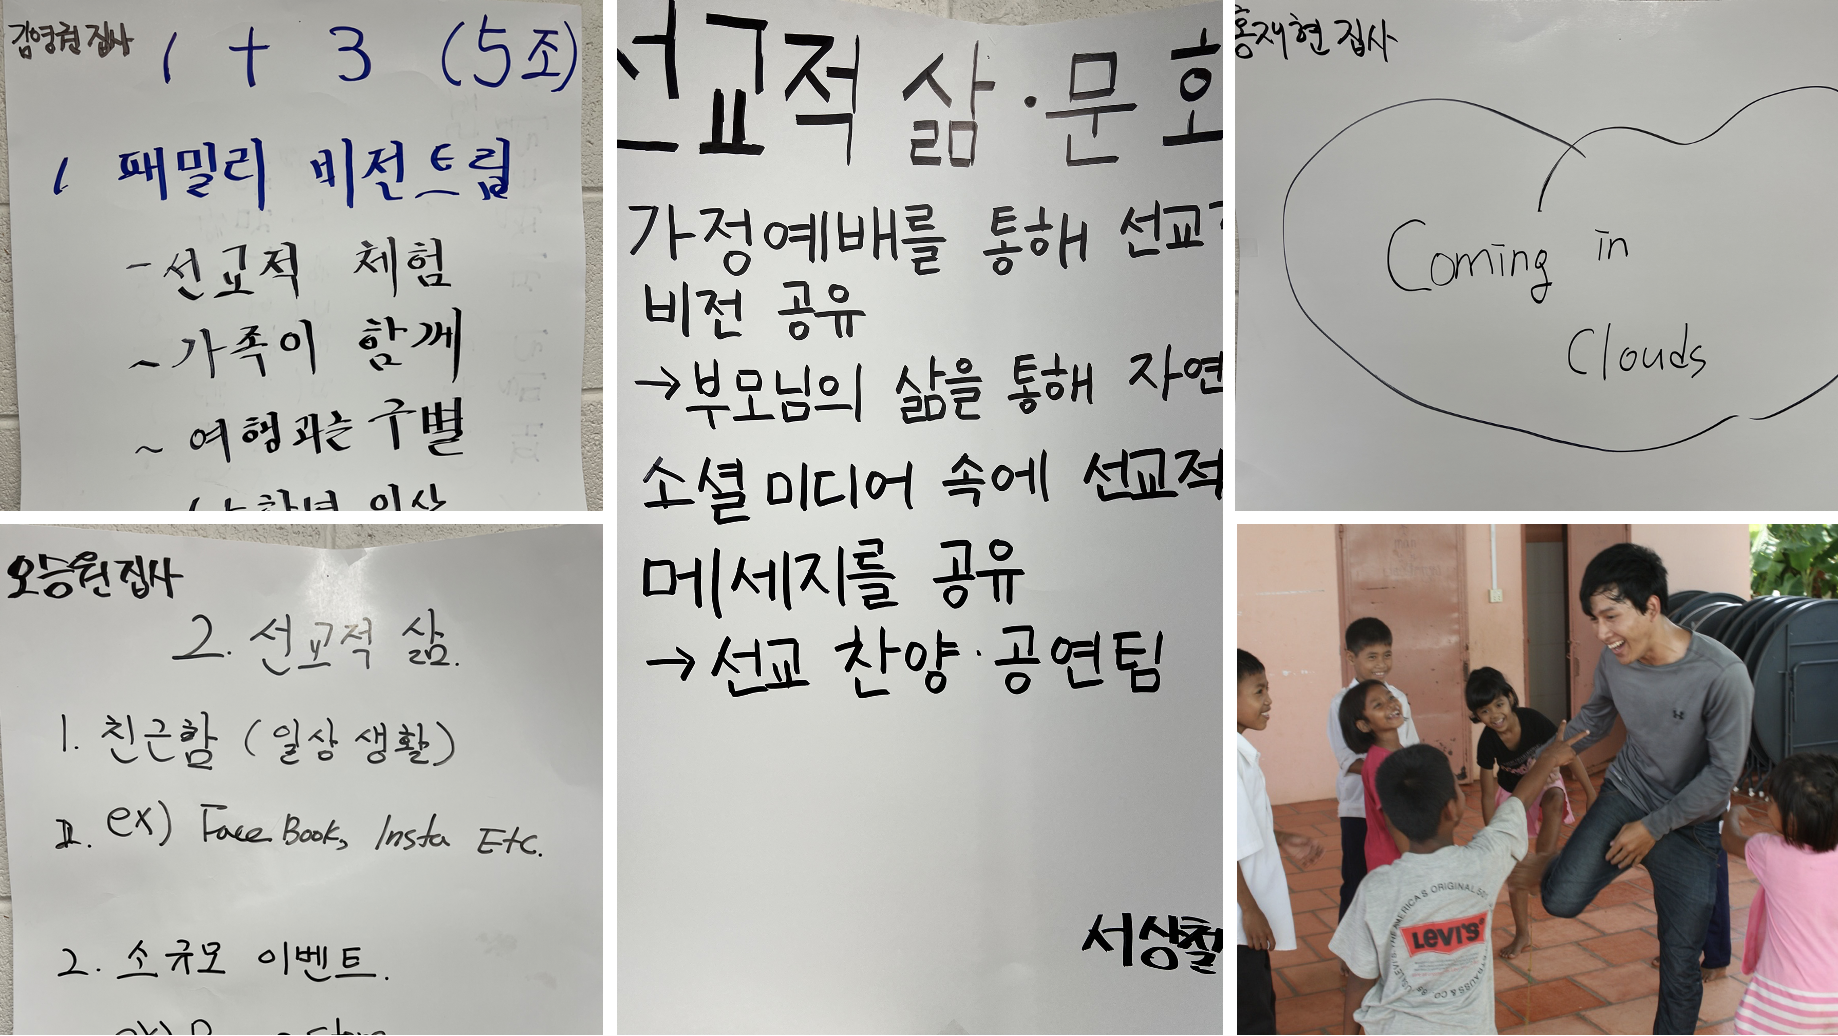 김영권 집사
1 + 3 (5조)
1 패밀리 비전트립
- 선교적 체험
~ 가족이 함께
~ 여행과는 구별
오승원 집사
2. 선교적 삶.
1. 친근함 (일상생활)
ex) FaceBook, Insta Etc.
2. 소규모 이벤트.
선교적 삶·문화
가정예배를 통해 선교적
비전 공유
→ 부모님의 삶을 통해 자연
소셜미디어 속에 선교적
메세지를 공유
→ 선교 찬양·공연팀
서상철
홍재현 집사
Coming in
Clouds
AMERICA'S ORIGINAL
LEVI'S